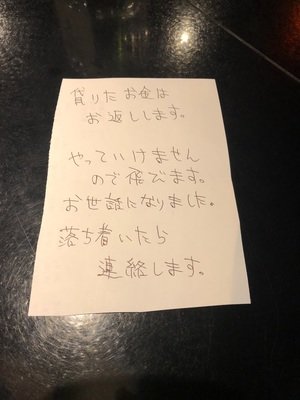 貸りたお金は
お返しします。
やっていけません
ので飛びます。
お世話になりました。
落ち着いたら
連絡します。